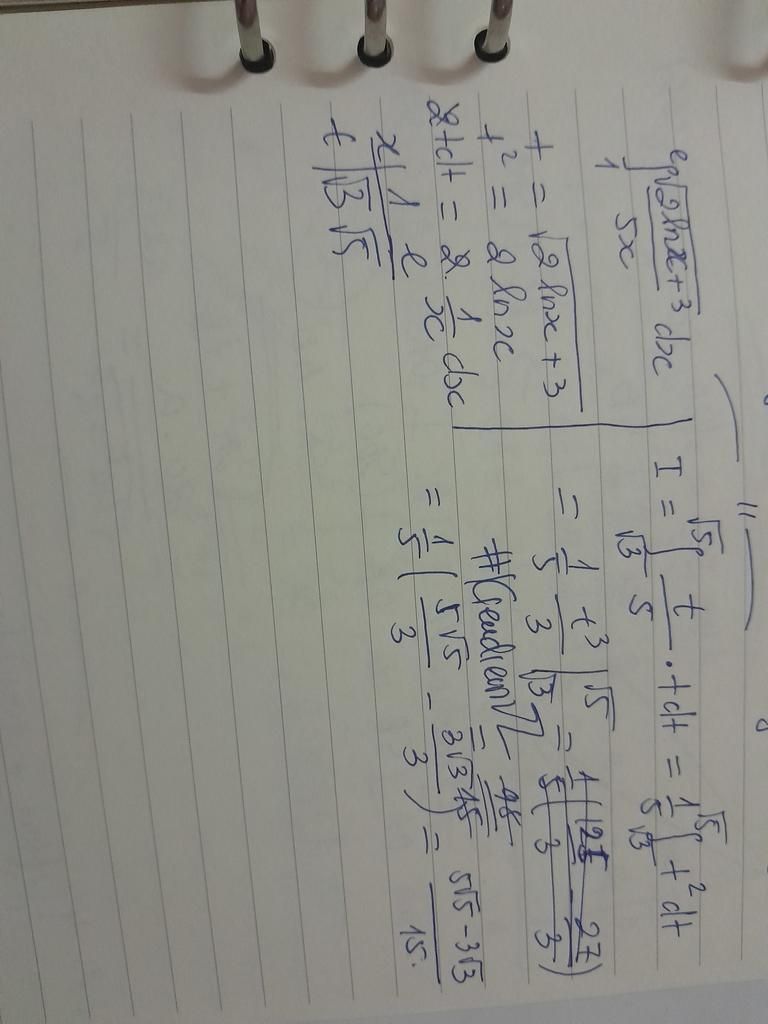 ∫₁ᵉ √(2lnx+3)/5x dx
t = √(2lnx+3)
t² = 2lnx
2tdt = 2·1/x dx
x | 1 e
t | √3 √5
I = ∫_√3^√5 t/5 · tdt = 1/5 ∫_√3^√5 t²dt
= 1/5 t³/3 |_√3^√5 = 1/5 (125/3 - 27/3)
= 98/15
= 1/5 (5√5/3 - 3√3/3) = (5√5-3√3)/15.